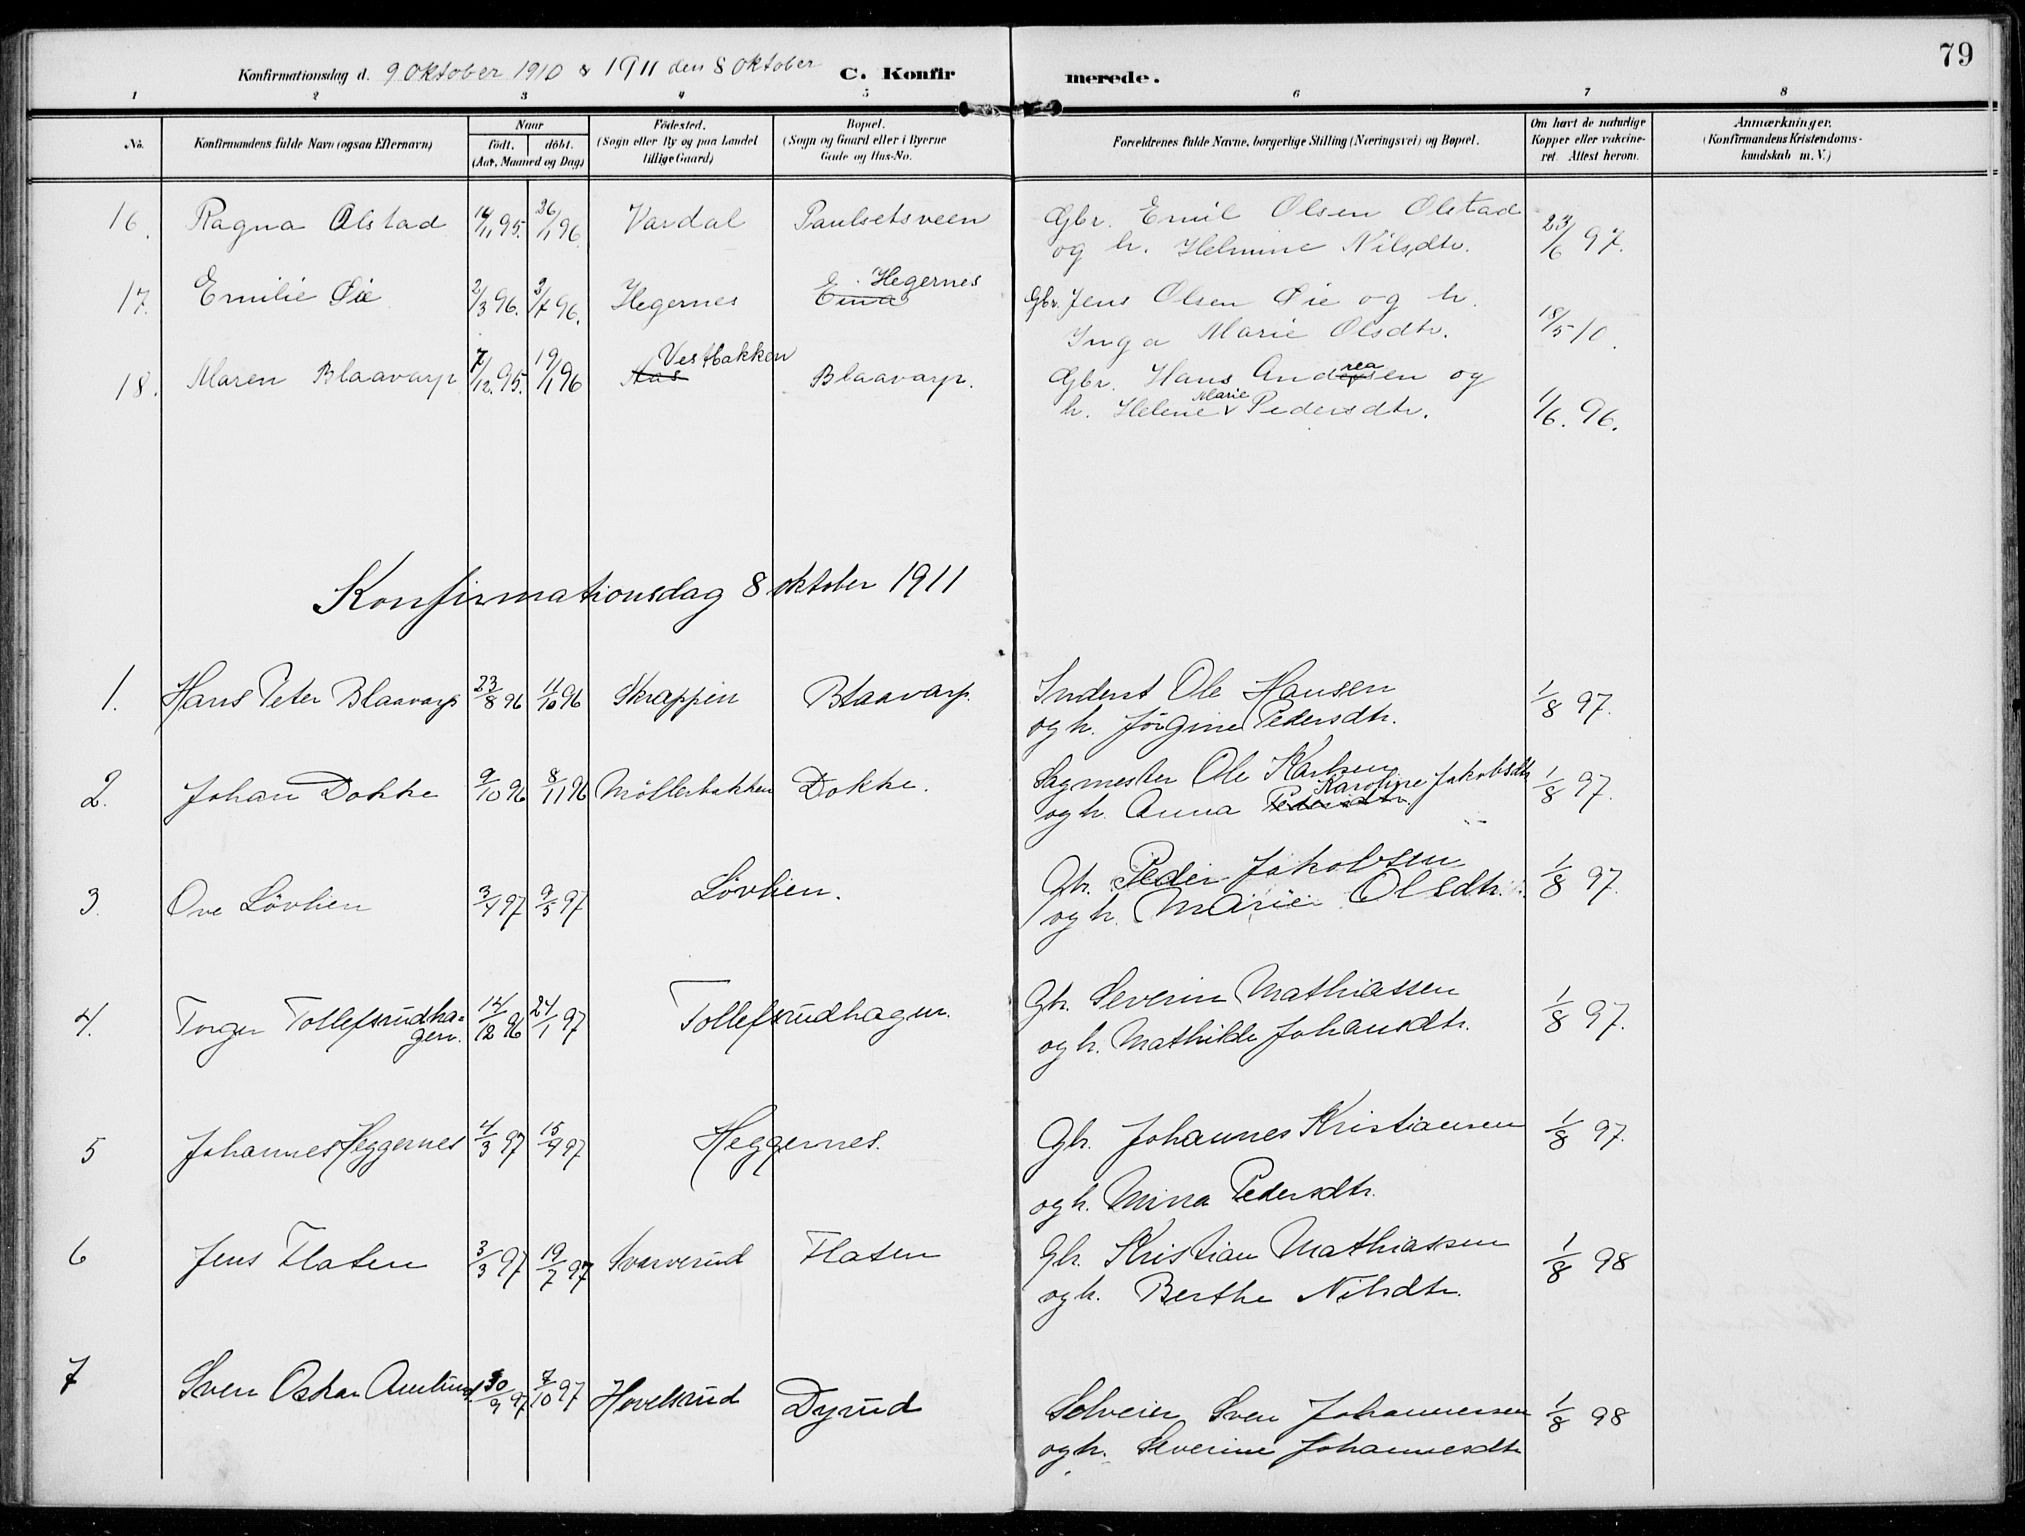 79
Konfirmationsdag d. 9 Oktober 1910 & 1911 den 8 Oktober C. Konfirmerede.
1 2 3 4 5 6 7 8
No. Konfirmandens fulde Navn (ogsaa Efternavn) Naar født. døbt. (Aar, Maaned og Dag) Fødested. (Sogn eller By og paa Landet tillige Gaard) Bopæl. (Sogn og Gaard eller i Byerne Gade og Hus-No. Forældrenes fulde Navne, borgerlige Stilling (Næringsvei) og Bopæl. Om havt de naturlige Kopper eller vakcineret. Attest herom. Anmærkninger. (Konfirmandens Kristendomskundskab m. V.)
16. Ragna Olstad 14/11 95. 26/1 96. Vardal Paulsetsveen Gbr. Emil Olsen Olstad 23/6 97.
og h. Helmine Nilsdtr.
17. Emilie Øie 2/3 96. 3/4 96. Hegernes Eina Hegernes Gbr. Jens Olsen Øie og h. 18/5 10.
Inga Marie Olsdtr.
18. Maren Blaavarp 7/12. 95. 19/1 96 Aas Vestbakken Blaavarp. Gbr. Hans Andersen rea og
h. Helene Marie Pedersdtr. 1/6. 96.
Konfirmationsdag 8 oktober 1911
1. Hans Peter Blaavarp 23/8 96 11/10 96 Skrappen Blaavarp. Inderst Ole Hansen 1/8 97.
og h. Jørgine Pedersdtr.
2. Johan Dokke 9/10 96 8/11 96 Møllerbakken Dokke. Sagmester Ole Karlsen 1/8 97.
og h. Anna Pedersdtr. Karoline Jakobsdtr
3. Ove Løvlien 3/4 97 9/5 97 Løvlien. Gbr. Peder Jakobsen 1/8 97.
og h. Marie Olsdtr.
4. Torger Tollefsrudha= 14/12 96 24/1 97 Tollefsrudhagen. Gbr. Severin Mathiassen 1/8 97.
gen. og h. Mathilde Johansdtr.
5 Johannes Heggernes 4/3 97 15/4 97 Heggernes. Gbr. Johannes Kristiansen 1/8 97.
og h. Mina Pedersdtr.
6 Jens Flaten 3/3 97 19/7 97 Svarverud Flaten Gbr. Kristian Mathiassen 1/8 98
og h. Berthe Nilsdtr.
7 Sven Oskar Amlund 30/9 97 7/10 97 Hovelsrud Dyrud Selveier Sven Johannessen 1/8 98
og h. Severine Johannesdtr